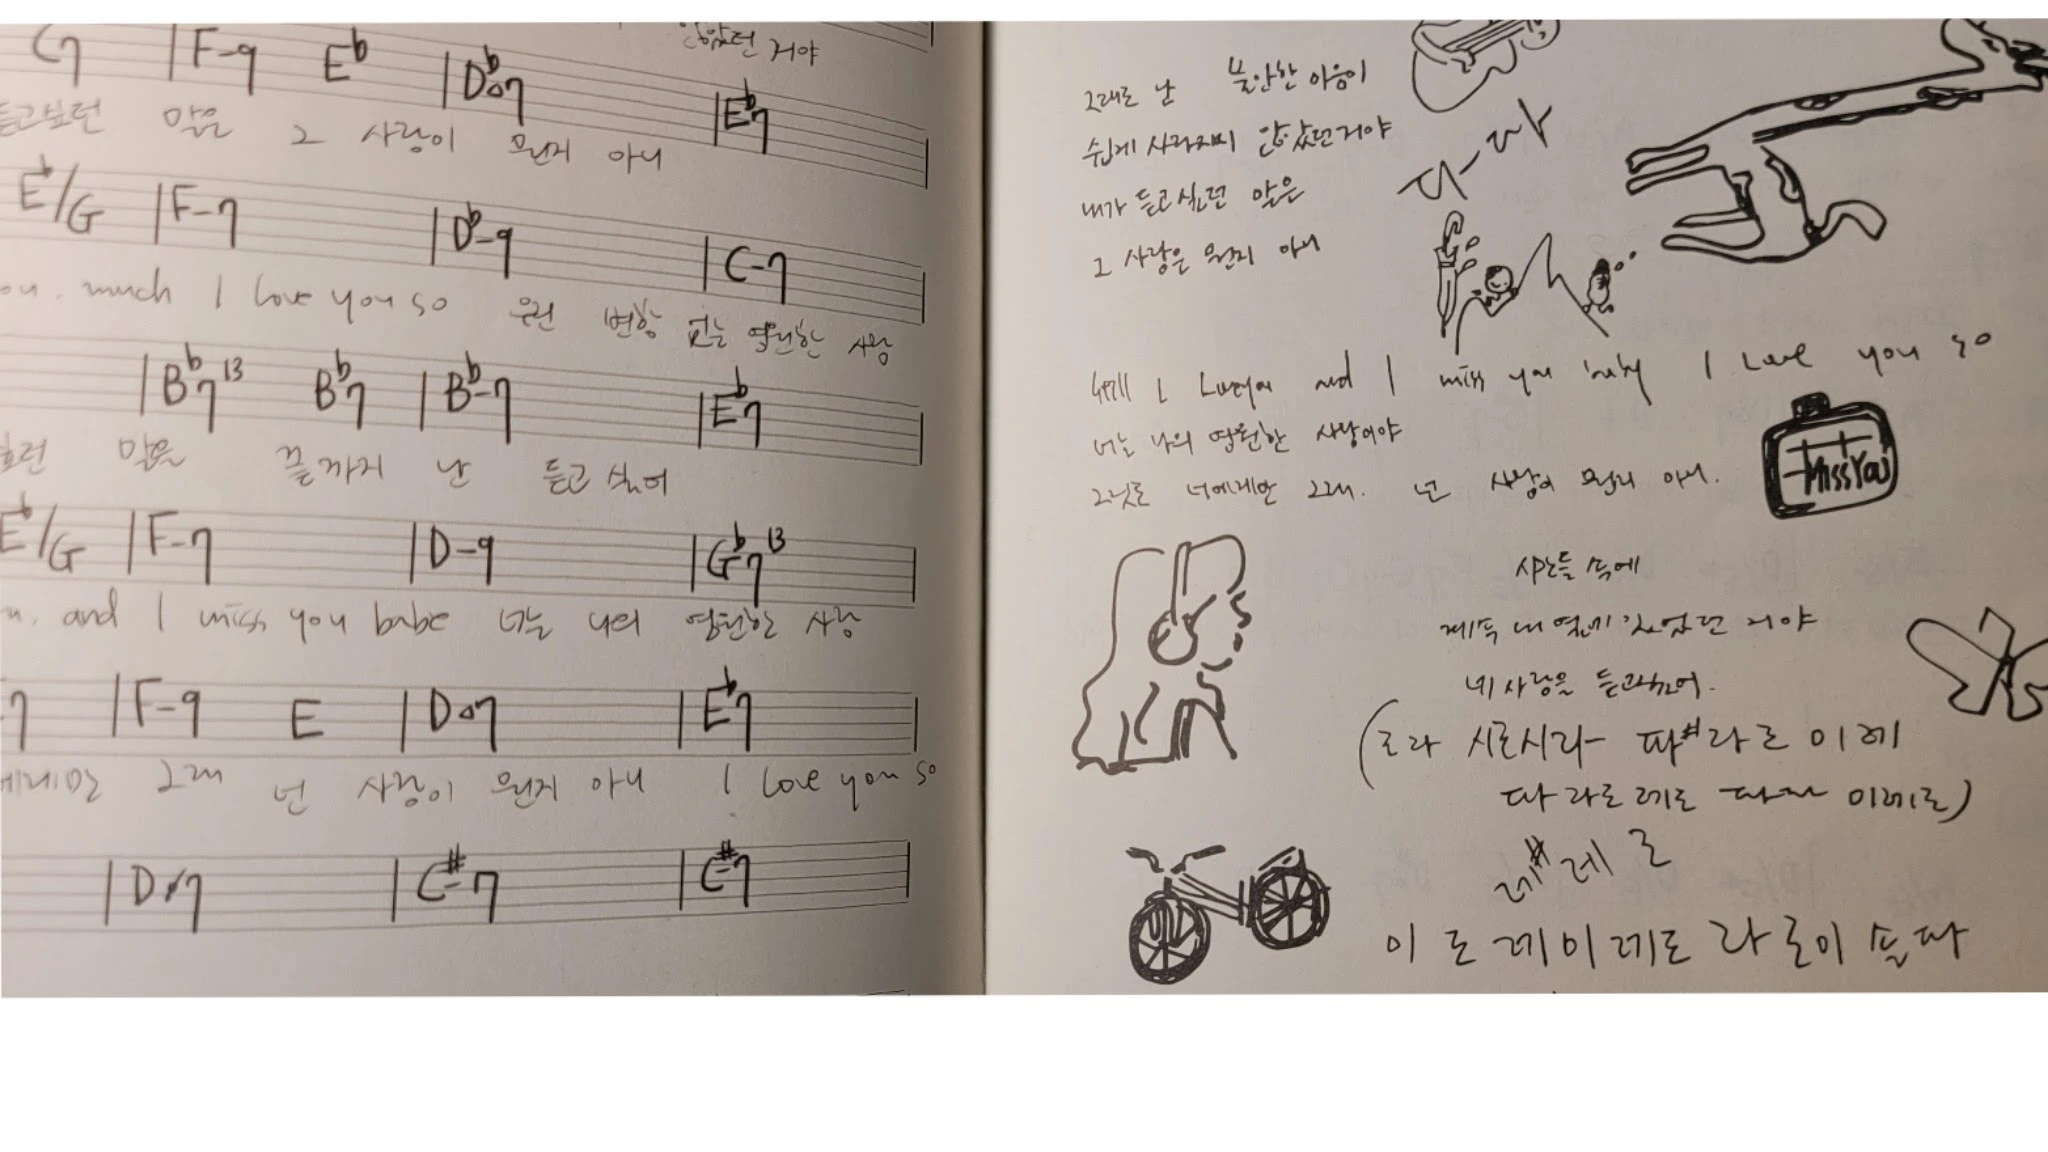 않았던 거야
C7 | F-9 E♭ | D♭△7 | E♭7
듣고싶던 말은 그 사랑이 뭔지 아니
E♭/G | F-7 | D♭-9 | C-7
you. much I love you so 우린 변함 없는 영원한 사랑
| B♭7 13 B♭7 | B♭-7 | E♭7
싶던 말은 끝까지 난 듣고 싶어
E♭/G | F-7 | D-9 | G♭7 13
and I miss you babe 너는 나의 영원한 사랑
7 | F-9 E | D△7 | E♭7
에게만 그래 넌 사랑이 뭔지 아니 I love you so
| D 7 | C#-7 | C#-7
그래로 난 불안한 마음이
쉽게 사라지지 않았던거야
내가 듣고싶던 말은
그 사랑은 뭔지 아니
다-라
well I love you and I miss you baby I Love you so
너는 나의 영원한 사랑이야
너에게만 그래. 넌 사랑이 뭔지 아니.
Miss You
시간들 속에
계속 내 옆에 있었던 거야
네 사랑을 듣고싶어.
(도라 시도시라- 파#라도 미레
파 라도레도 미레도)
레# 레 도
미 도 레미레도 라 도미 솔파